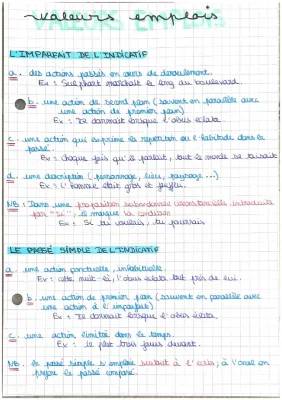 valeurs emplois
L'IMPARFAIT DE L'INDICATIF
a. des actions passés en cours de déroulement.
Ex : Sulphart marchait le long du boulevard.
b. une action de second plan (souvent en parallèle avec
une action de premier plan)
Ex : Il dormait lorsque l'obus éclata.
c. une action qui exprime la répétition ou l'habitude dans le
passé.
Ex : chaque fois qu'il parlait, tout le monde se taisait
d. une description (personnage, lieu, paysage...)
Ex : l'homme était gros et joufflu.
NB : Dans une proposition subordonnée circonstancielle introduite
par "si", il marque la condition
Ex : Si tu voulais, tu pourrais
LE PASSÉ SIMPLE DE L'INDICATIF
a. une action ponctuelle, inhabituelle.
Ex : cette nuit-là, l'obus éclata tout près de lui.
b. une action de premier plan (souvent en parallèle avec
une action à l'imparfait)
Ex : Il dormait lorsque l'obus éclata.
c. une action limitée dans le temps.
Ex : il plut trois jours durant.
NB. le passé simple s'emploie surtout à l'écrit, à l'oral on
préfère le passé composé.